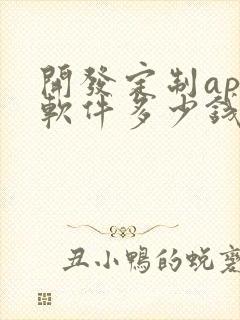 開發定制ap
軟件多少錢
丑小鴨的蛻變